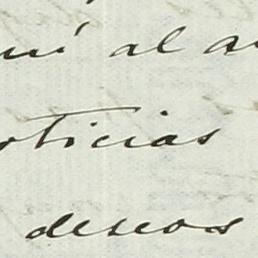 al
noticias
deseos